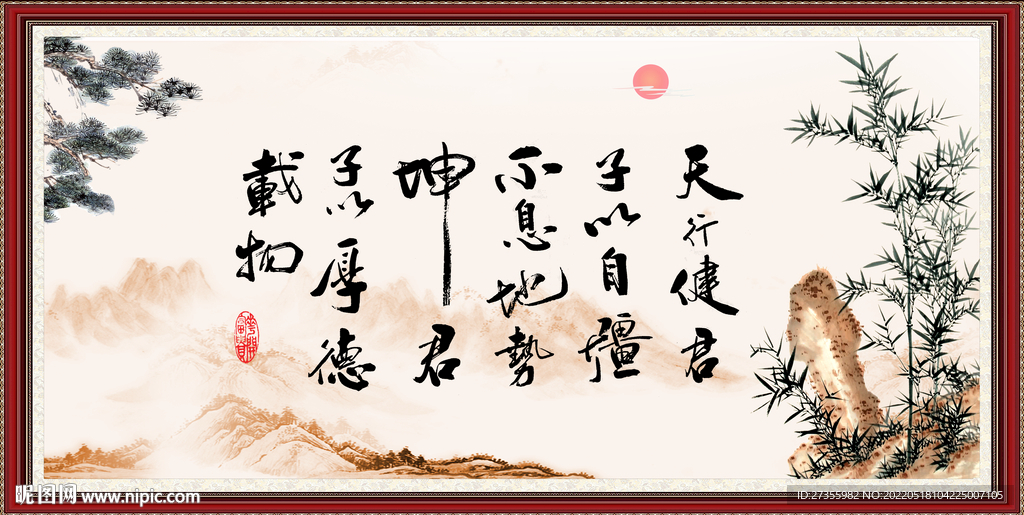 天行健君
子以自疆
不息地勢
坤君
子以厚德
載物
昵图网 www.nipic.com
ID:27355982 NO:20220518104225007105